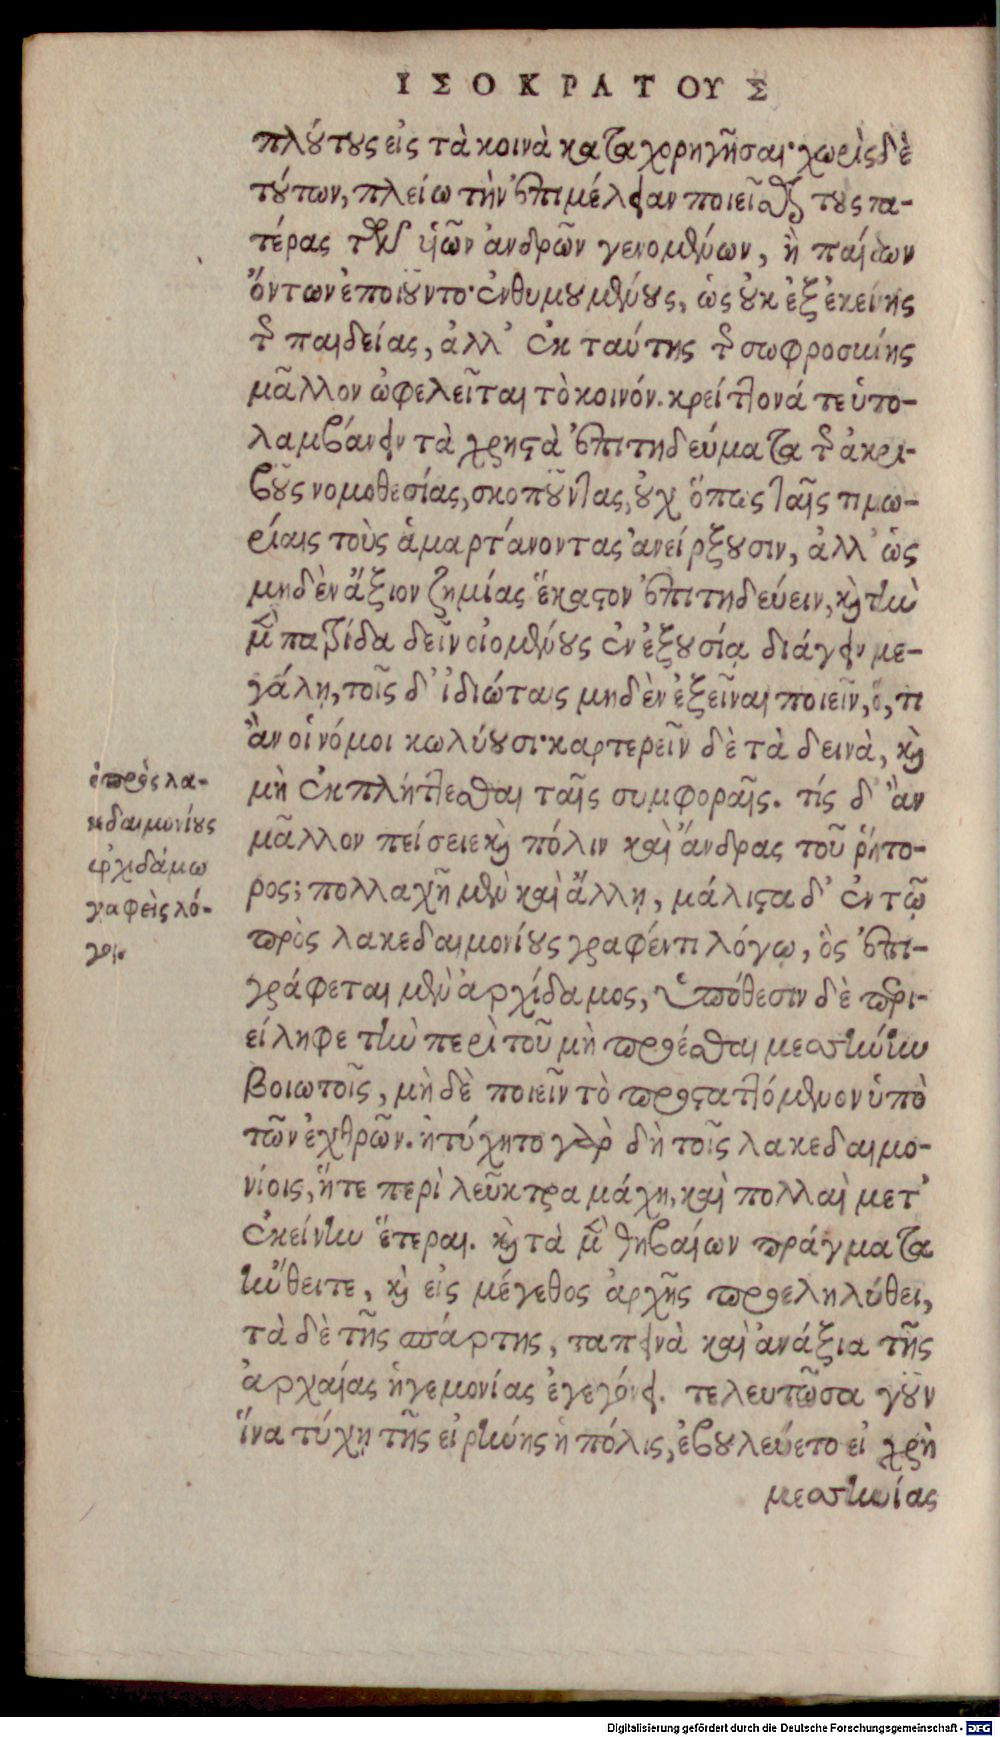 ΙΣΟΚΡΑΤΟΥΣ
πλούτους εἰς τὰ κοινὰ καταχορηγῆσαι· χωρὶς δὲ
τούτων, πλείω τὴν ἐπιμέλειαν ποιεῖσθαι τοὺς πα-
τέρας τῶν υἱῶν ἀνδρῶν γενομένων, ἢ παίδων
ὄντων ἐποιοῦντο· ἐνθυμουμένους, ὡς οὐκ ἐξ ἐκείνης
τῆς παιδείας, ἀλλ' ἐκ ταύτης τῆς σωφροσύνης
μᾶλλον ὠφελεῖται τὸ κοινόν. κρείττονά τε ὑπο-
λαμβάνειν τὰ χρηστὰ ἐπιτηδεύματα τῆς ἀκρι-
βοῦς νομοθεσίας, σκοποῦντας, οὐχ ὅπως ταῖς τιμω-
ρίαις τοὺς ἁμαρτάνοντας ἀνείρξουσιν, ἀλλ' ὡς
μηδὲν ἄξιον ζημίας ἕκαστον ἐπιτηδεύειν, καὶ τὴν
μὲν πατρίδα δεῖν οἰομένους ἐν ἐξουσίᾳ διάγειν με-
γάλῃ, τοῖς δ' ἰδιώταις μηδὲν ἐξεῖναι ποιεῖν, ὅ, τι
ἂν οἱ νόμοι κωλύουσι· καρτερεῖν δὲ τὰ δεινὰ, καὶ
μὴ ἐκπλήττεσθαι ταῖς συμφοραῖς. τίς δ' ἂν
μᾶλλον πείσειε καὶ πόλιν καὶ ἄνδρας τοῦ ῥήτο-
ρος; πολλαχῆ μὲν καὶ ἄλλῃ, μάλιστα δ' ἐν τῷ
πρὸς λακεδαιμονίους γραφέντι λόγῳ, ὃς ἐπι-
γράφεται μὲν ἀρχίδαμος, ὑπόθεσιν δὲ περι-
είληφε τὴν περὶ τοῦ μὴ προέσθαι μεσσήνην
βοιωτοῖς, μὴ δὲ ποιεῖν τὸ προσταττόμενον ὑπὸ
τῶν ἐχθρῶν. ἠτύχητο γὰρ δὴ τοῖς λακεδαιμο-
νίοις, ἥτε περὶ λεῦκτρα μάχη, καὶ πολλαὶ μετ'
ἐκείνην ἕτεραι. καὶ τὰ μὲν θηβαίων πράγματα
ηὔθειτε, καὶ εἰς μέγεθος ἀρχῆς προεληλύθει,
τὰ δὲ τῆς σπάρτης, ταπεινὰ καὶ ἀνάξια τῆς
ἀρχαίας ἡγεμονίας ἐγεγόνει. τελευτῶσα γοῦν
ἵνα τύχῃ τῆς εἰρήνης ἡ πόλις, ἐβουλεύετο εἰ χρὴ
μεσσηνίας
ὁ πρὸς λα-
κεδαιμονίους
ἀρχιδάμῳ
γραφεὶς λό-
γος.
Digitalisierung gefördert durch die Deutsche Forschungsgemeinschaft - DFG